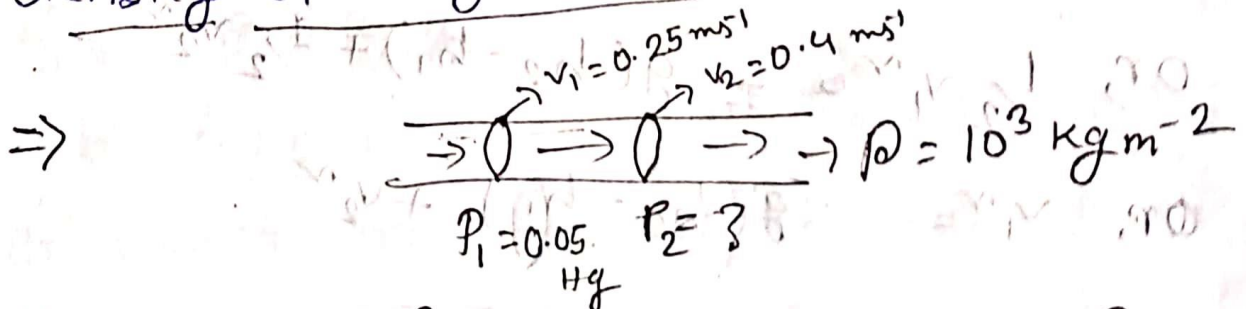 v₁ = 0.25 ms⁻¹ v₂ = 0.4 ms⁻¹
=> → → → → ρ = 10³ kg m⁻²
P₁ = 0.05 P₂ = ?
Hg